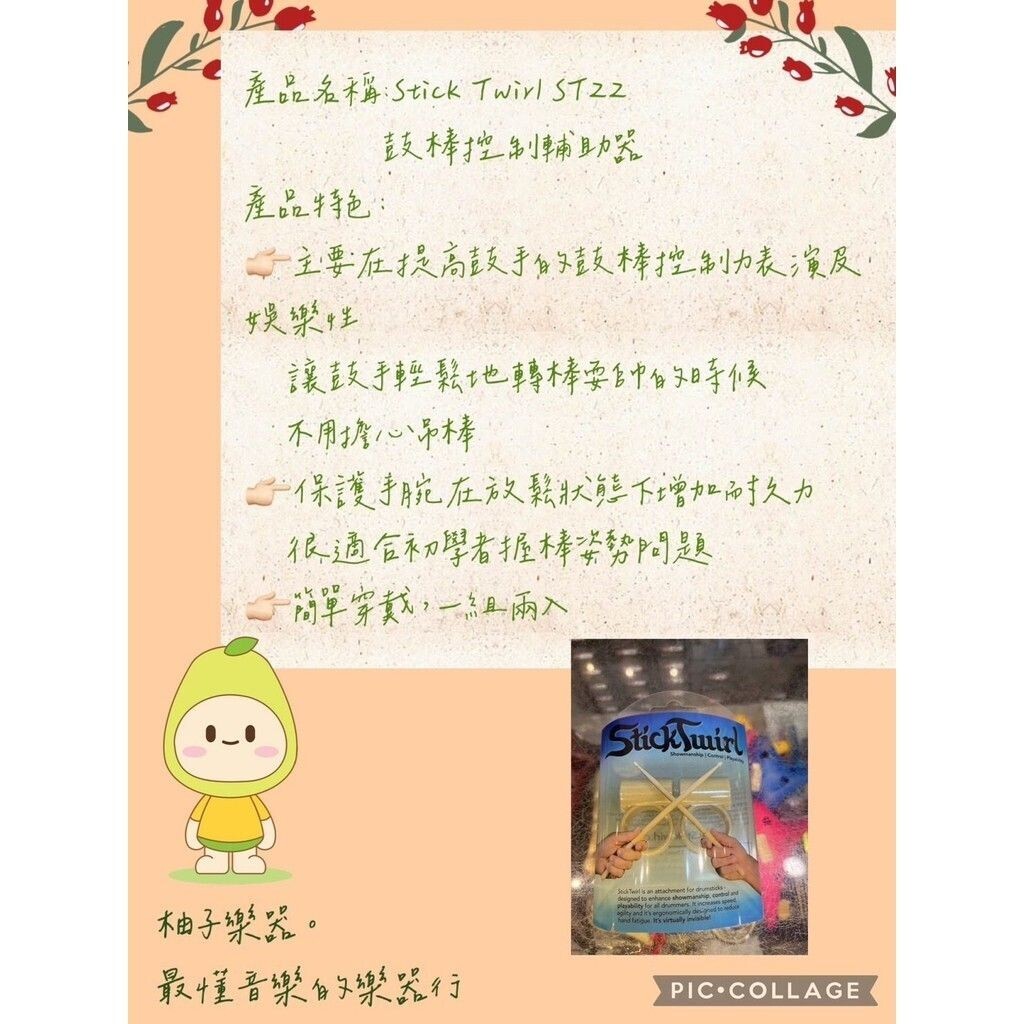 產品名稱:Stick Twirl STZZ
鼓棒控制輔助器
產品特色:
主要在提高鼓手的鼓棒控制力表演及
娛樂性
讓鼓手輕鬆地轉棒耍帥的時候
不用擔心吊棒
保護手腕在放鬆狀態下增加耐久力
很適合初學者握棒姿勢問題
簡單穿戴,一組兩入
StickTwirl
Showmanship | Control | Playability
StickTwirl is an attachment for drumsticks -
designed to enhance showmanship, control and
playability for all drummers. It increases speed,
agility and it's ergonomically designed to reduce
hand fatigue. It's virtually invisible!
柚子樂器。
最懂音樂的樂器行
PIC•COLLAGE